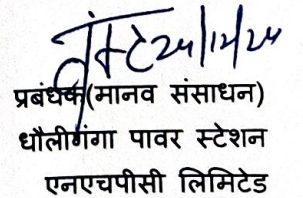 24/12/24
प्रबंधक(मानव संसाधन)
धौलीगंगा पावर स्टेशन
एनएचपीसी लिमिटेड